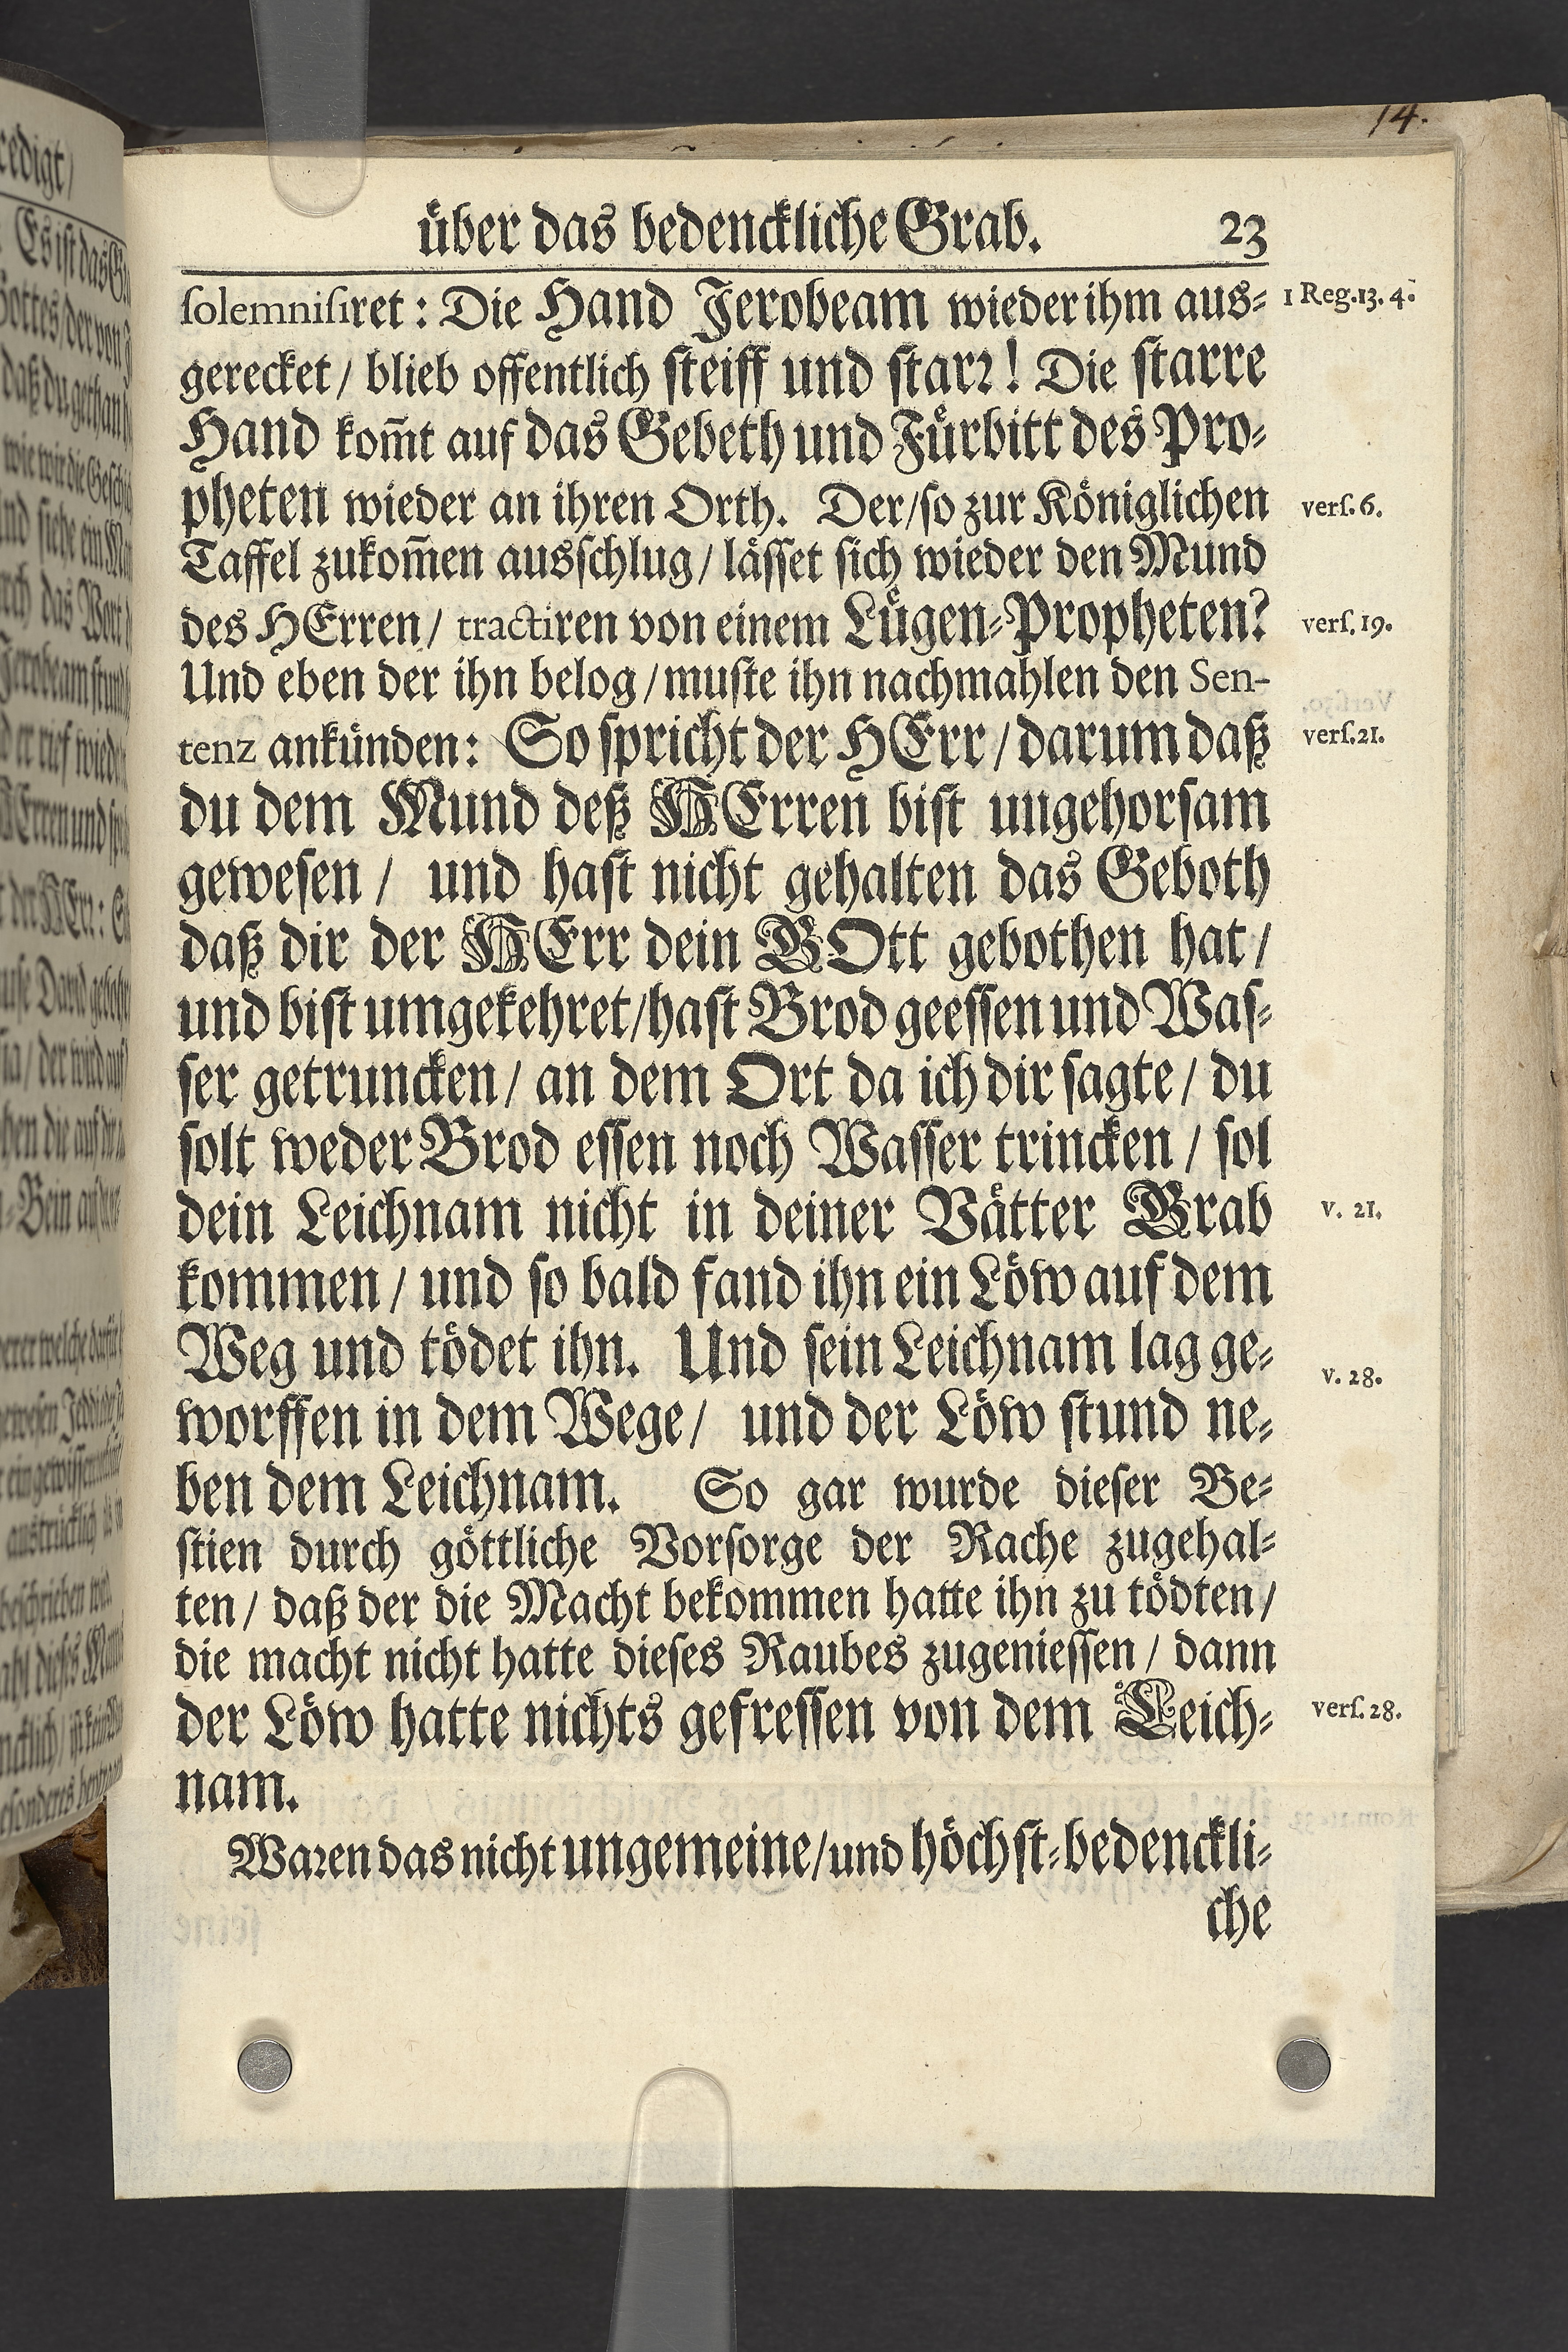 14.
über das bedenckliche Grab. 23
ſolemniſiret : Die Hand Jerobeam wieder ihm aus- 1 Reg. 13. 4.
gerecket / blieb offentlich ſteiff und ſtarꝛ ! Die ſtarre
Hand kom̃t auf das Gebeth und Fürbitt des Pro-
pheten wieder an ihren Orth. Der / ſo zur Königlichen verſ. 6.
Taffel zukom̃en ausſchlug / läſſet ſich wieder den Mund
des HErren / tractiren von einem Lügen-Propheten? verſ. 19.
Und eben der ihn belog / muſte ihn nachmahlen den Sen-
tenz ankünden: So ſpricht der HErr / darum daß verſ. 21.
du dem Mund deß HErren biſt ungehorſam
geweſen / und haſt nicht gehalten das Geboth
daß dir der HErr dein GOtt gebothen hat /
und biſt umgekehret / haſt Brod geeſſen und Waſ-
ſer getruncken / an dem Ort da ich dir ſagte / du
ſolt weder Brod eſſen noch Waſſer trincken / ſol
dein Leichnam nicht in deiner Vätter Grab v. 21.
kommen / und ſo bald fand ihn ein Löw auf dem
Weg und tödet ihn. Und ſein Leichnam lag ge- v. 28.
worffen in dem Wege / und der Löw ſtund ne-
ben dem Leichnam. So gar wurde dieſer Be-
ſtien durch göttliche Vorſorge der Rache zugehal-
ten / daß der die Macht bekommen hatte ihn zu tödten /
die macht nicht hatte dieſes Raubes zugenieſſen / dann
der Löw hatte nichts gefreſſen von dem Leich- verſ. 28.
nam.
Waꝛen das nicht ungemeine / und höchſt-bedenckli-
che